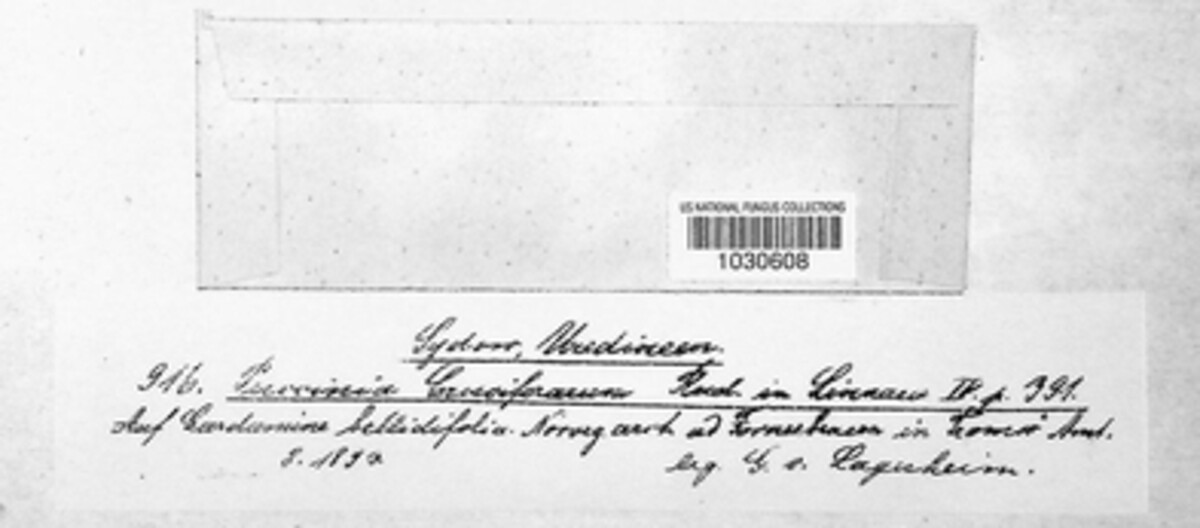 US NATIONAL FUNGUS COLLECTIONS
1030608
Sydow, Uredineen.
916. Puccinia Cruciferarum Rud. in Linnaea IV. p. 391.
Auf Cardamine bellidifolia. Norveg. arct. ad in Tromsö Amt.
8. 189
leg. G. v. Lagerheim.